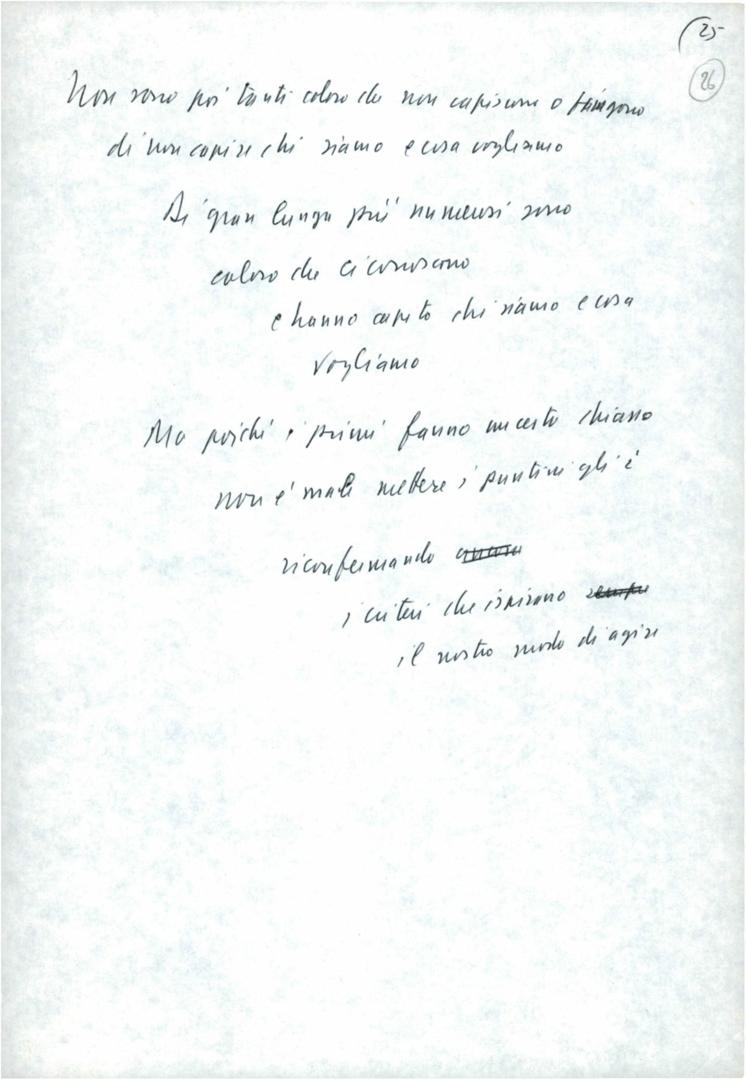 25
26
Non sono poi tanti coloro che non capiscono o fingono
di non capire chi siamo e cosa vogliamo
Di gran lunga più numerosi sono
coloro che ci conoscono
e hanno capito chi siamo e cosa
vogliamo
Ma poiché i primi fanno un certo chiasso
non è male mettere i puntini gli i
riconfermando ancora
i criteri che ispirano sempre
il nostro modo di agire